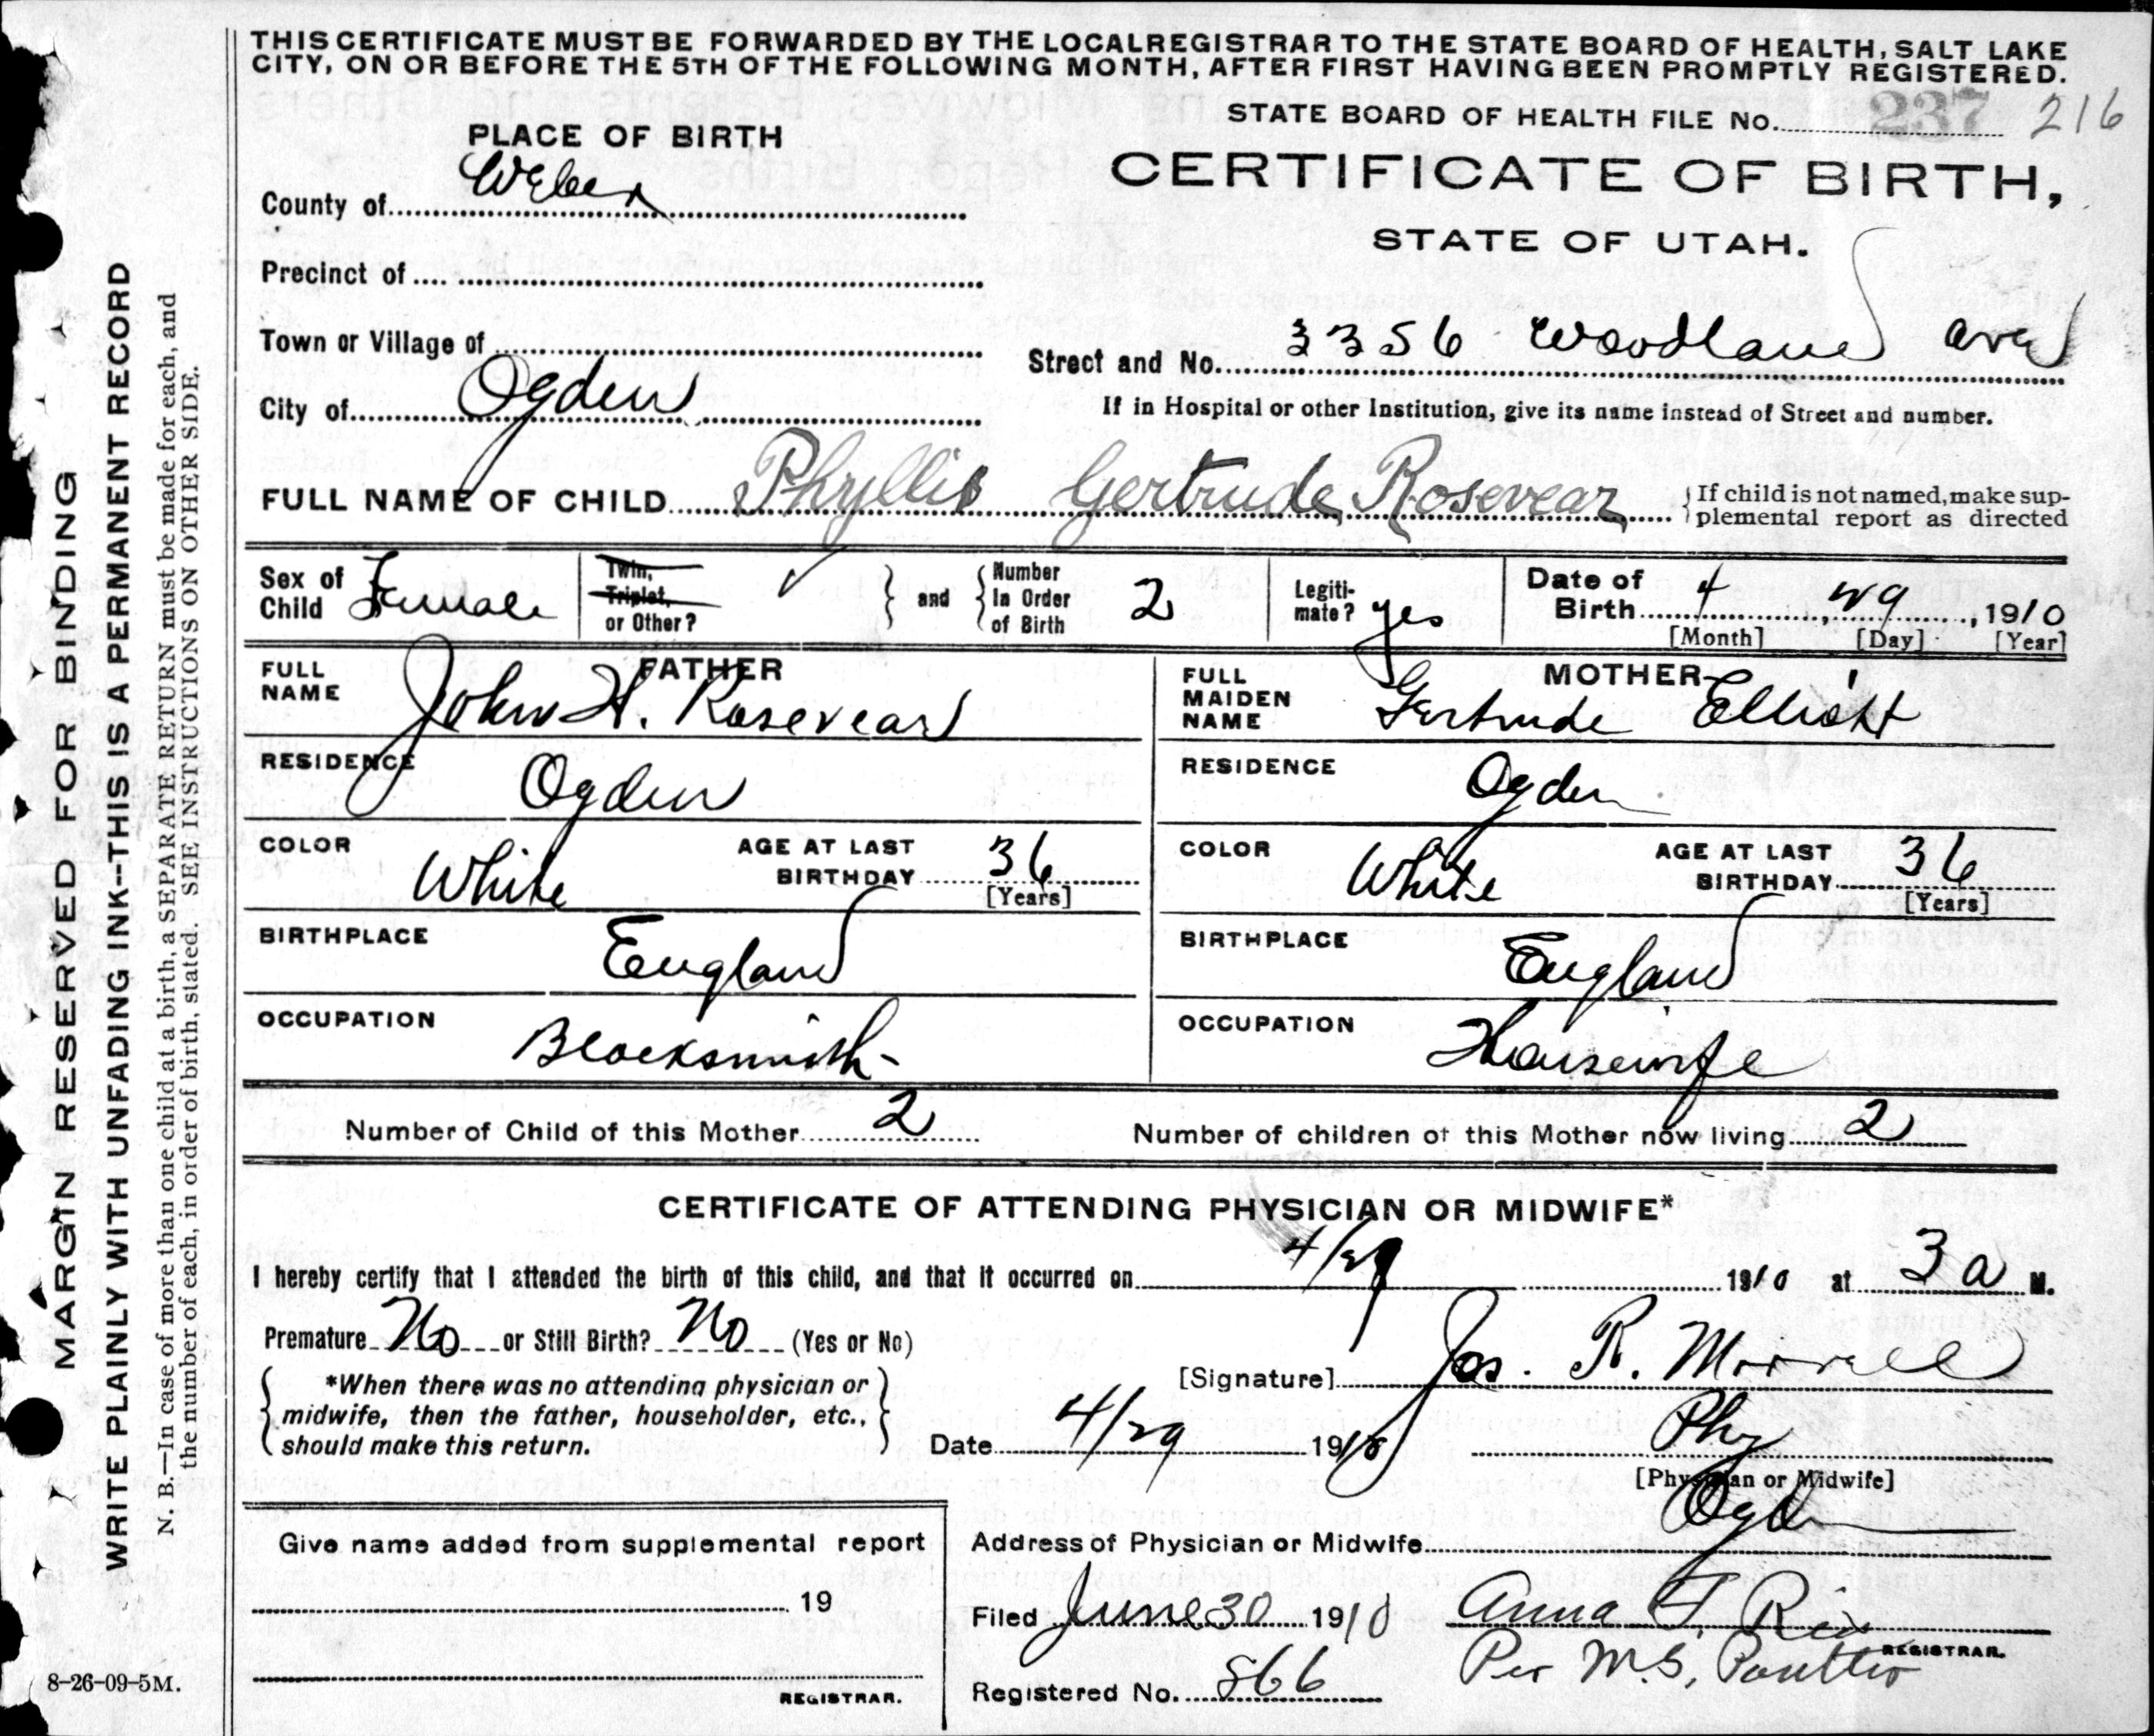 THIS CERTIFICATE MUST BE FORWARDED BY THE LOCAL REGISTRAR TO THE STATE BOARD OF HEALTH, SALT LAKE
CITY, ON OR BEFORE THE 5TH OF THE FOLLOWING MONTH, AFTER FIRST HAVING BEEN PROMPTLY REGISTERED.
STATE BOARD OF HEALTH FILE No. 237 216
PLACE OF BIRTH
CERTIFICATE OF BIRTH,
STATE OF UTAH.
County of Weber
Precinct of
Town or Village of
Street and No. 3356 Woodland ave
City of Ogden
If in Hospital or other Institution, give its name instead of Street and number.
FULL NAME OF CHILD Phyllis Gertrude Rosevear
If child is not named, make sup-
plemental report as directed
Sex of Child Female
Twin, Triplet, or Other? ✓
and
Number In Order of Birth 2
Legiti-mate? yes
Date of Birth 4, 29, 1910
[Month] [Day] [Year]
FATHER
FULL NAME John H. Rosevear
RESIDENCE Ogden
COLOR White
AGE AT LAST BIRTHDAY 36
[Years]
BIRTHPLACE England
OCCUPATION Blacksmith
MOTHER
FULL MAIDEN NAME Gertrude Elliott
RESIDENCE Ogden
COLOR White
AGE AT LAST BIRTHDAY 36
[Years]
BIRTHPLACE England
OCCUPATION Housewife
Number of Child of this Mother 2
Number of children of this Mother now living 2
CERTIFICATE OF ATTENDING PHYSICIAN OR MIDWIFE*
I hereby certify that I attended the birth of this child, and that it occurred on 4/29 1910 at 3 a M.
Premature No or Still Birth? No (Yes or No)
*When there was no attending physician or
midwife, then the father, householder, etc.,
should make this return.
[Signature] Jos. R. Morrell
Date 4/29 1910
Phy
[Physician or Midwife]
Give name added from supplemental report
19
REGISTRAR.
Address of Physician or Midwife Ogden
Filed June 30 1910
Anna T. 
REGISTRAR.
Per M. S. 
Registered No. 866
MARGIN RESERVED FOR BINDING
WRITE PLAINLY WITH UNFADING INK--THIS IS A PERMANENT RECORD
N. B.—In case of more than one child at a birth, a SEPARATE RETURN must be made for each, and
the number of each, in order of birth, stated. SEE INSTRUCTIONS ON OTHER SIDE.
8-26-09-5M.